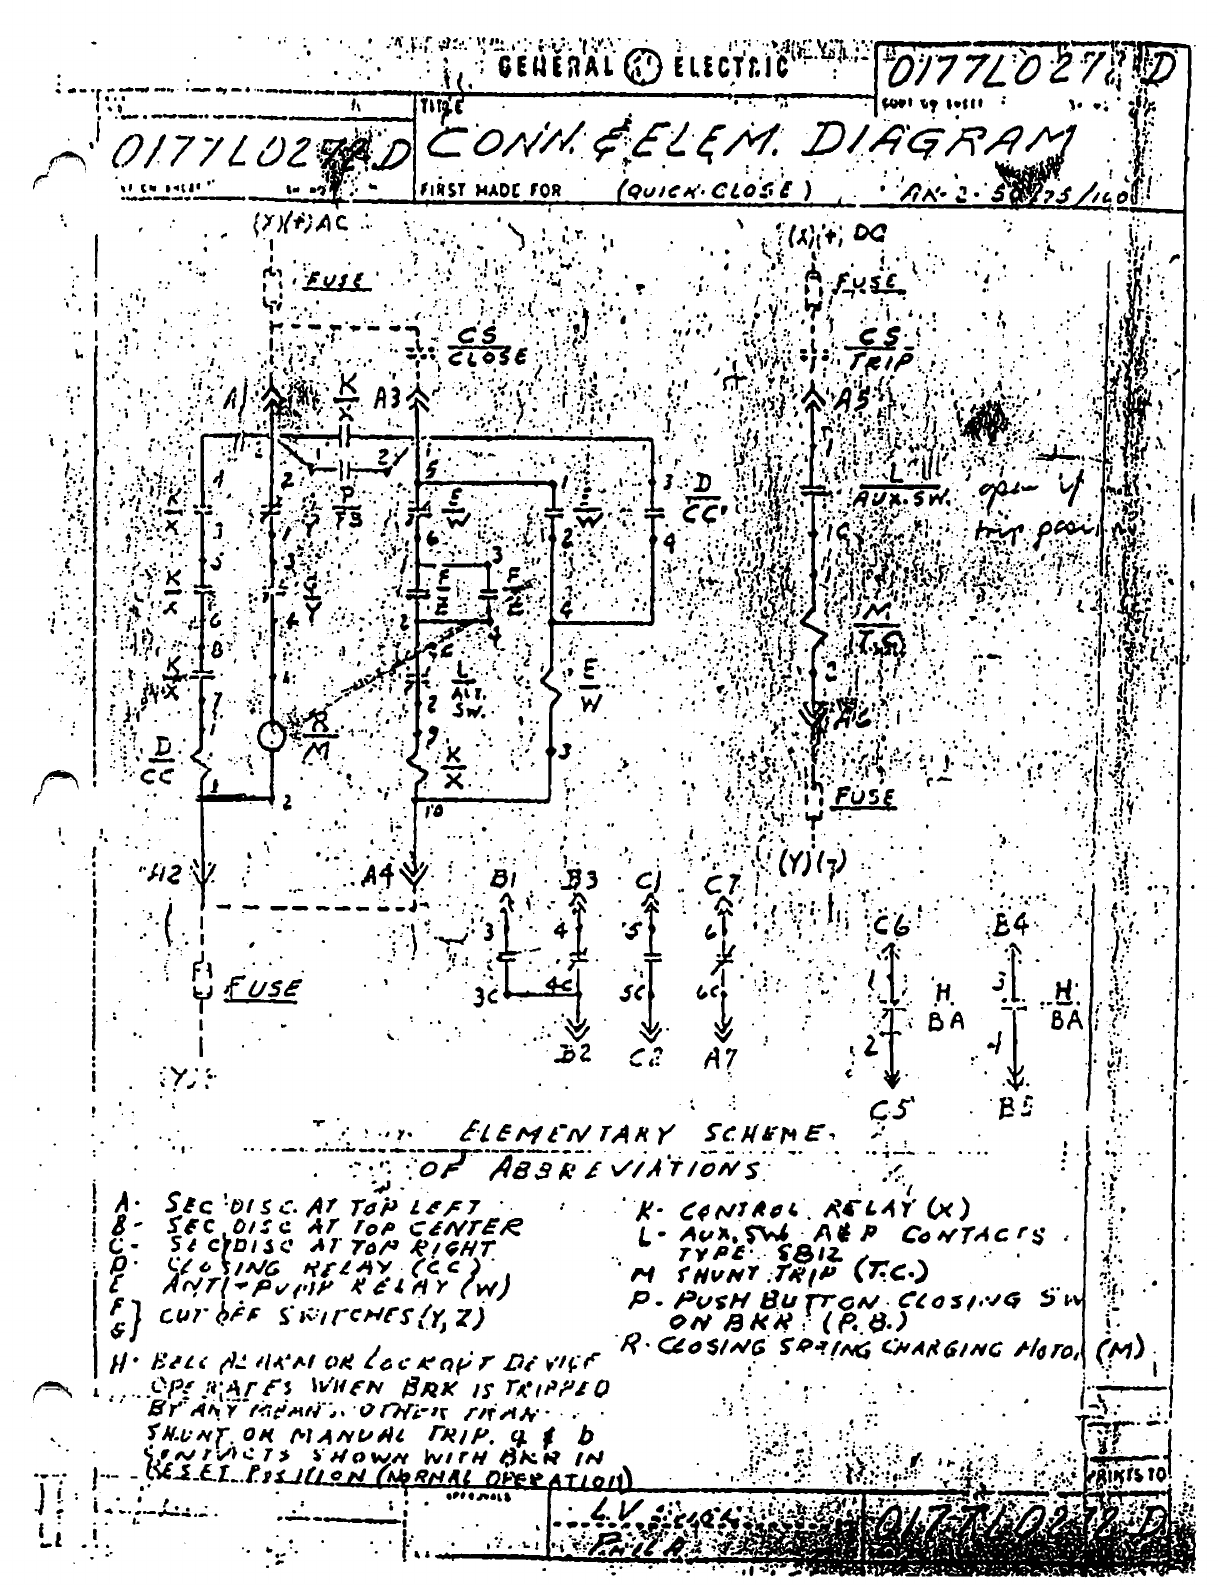 GENERAL ELECTRIC
0177L0272 D
TITLE
CONN. & ELEM. DIAGRAM
0177L0272 D
FIRST MADE FOR (QUICK-CLOSE) AK-2-50/75/100
(X)(+) AC
FUSE
CS
CLOSE
A1
K
X
A3
(X)(+) DC
FUSE
CS
TRIP
A5
L
AUX. SW.
open if
trip
1C
M
(T.C.)
2
A6
FUSE
(Y)(-)
1
2
1
2
5
1
3
D
CC
K
X
P
E
W
E
W
3
1
6
2
4
5
3
1
3
K
X
G
Y
F
Z
F
Z
6
4
2
4
4
8
K
X
L
ALT.
SW.
E
W
7
2
R
M
9
3
D
CC
K
X
2
10
A2
A4
FUSE
(Y)
B1 B3 C1 C7
3 4 5 6
3C 4C 5C 6C
B2 C2 A7
C6 B4
1 3
H
BA
H
BA
2 4
C5 B5
ELEMENTARY SCHEME
OF ABBREVIATIONS
A- SEC DISC. AT TOP LEFT
B- SEC DISC AT TOP CENTER
C- SEC DISC AT TOP RIGHT
D- CLOSING RELAY (CC)
E ANTI-PUMP RELAY (W)
F
G} CUT OFF SWITCHES (Y, Z)
H- BELL ALARM OR LOCKOUT DEVICE
OPERATES WHEN BRK IS TRIPPED
BY ANY MEANS OTHER THAN
SHUNT OR MANUAL TRIP. a & b
CONTACTS SHOWN WITH BKR IN
RESET POSITION (NORMAL OPERATION)
K- CONTROL RELAY (X)
L- AUX. SW. A & P CONTACTS
TYPE SB12
M SHUNT TRIP (T.C.)
P- PUSH BUTTON CLOSING SW
ON BKR (P.B.)
R- CLOSING SPRING CHARGING MOTOR (M)
PRINTS TO
APPROVALS
L.V.
PHILA
0177L0272 D